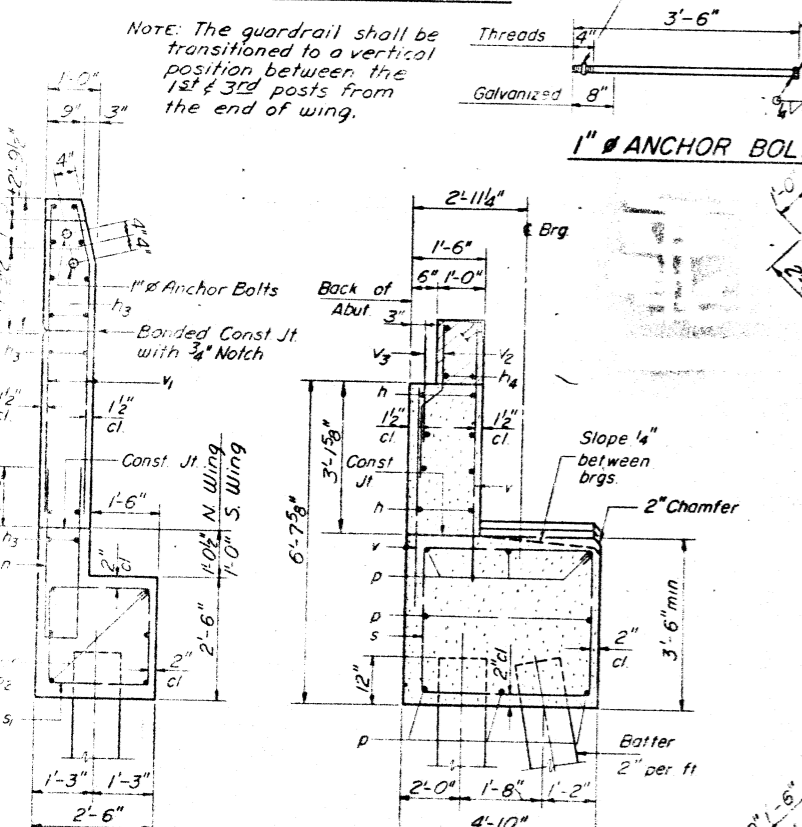 NOTE: The guardrail shall be
transitioned to a vertical
position between the
1st & 3rd posts from
the end of wing.
Threads 4"
3'-6"
Galvanized 8"
1" ø ANCHOR BOL
1'-0"
9" 3"
4"
4" 4"
1" ø Anchor Bolts
h3
Bonded Const Jt.
with 3/4" Notch
h3
v1
1½"
cl.
1½"
cl.
Const. Jt.
1'-6"
1'-0½" N Wing
1'-0" S. Wing
h3
n
2"
cl
2'-6"
2"
cl
s1
1'-3" 1'-3"
2'-6"
2'-11¼"
℄ Brg.
1'-6"
6" 1'-0"
Back of
Abut.
3"
v3
v2
h4
h
1½"
cl.
1½"
cl.
3'-1⅝"
Const
Jt
v
h
6'-7⅝"
Slope ¼"
between
brgs.
2" Chamfer
v
p
p
s
2"
cl.
3'-6" min
12"
2" cl
p
Batter
2" per ft
2'-0" 1'-8" 1'-2"
4'-10"
1'-0
1'-6"